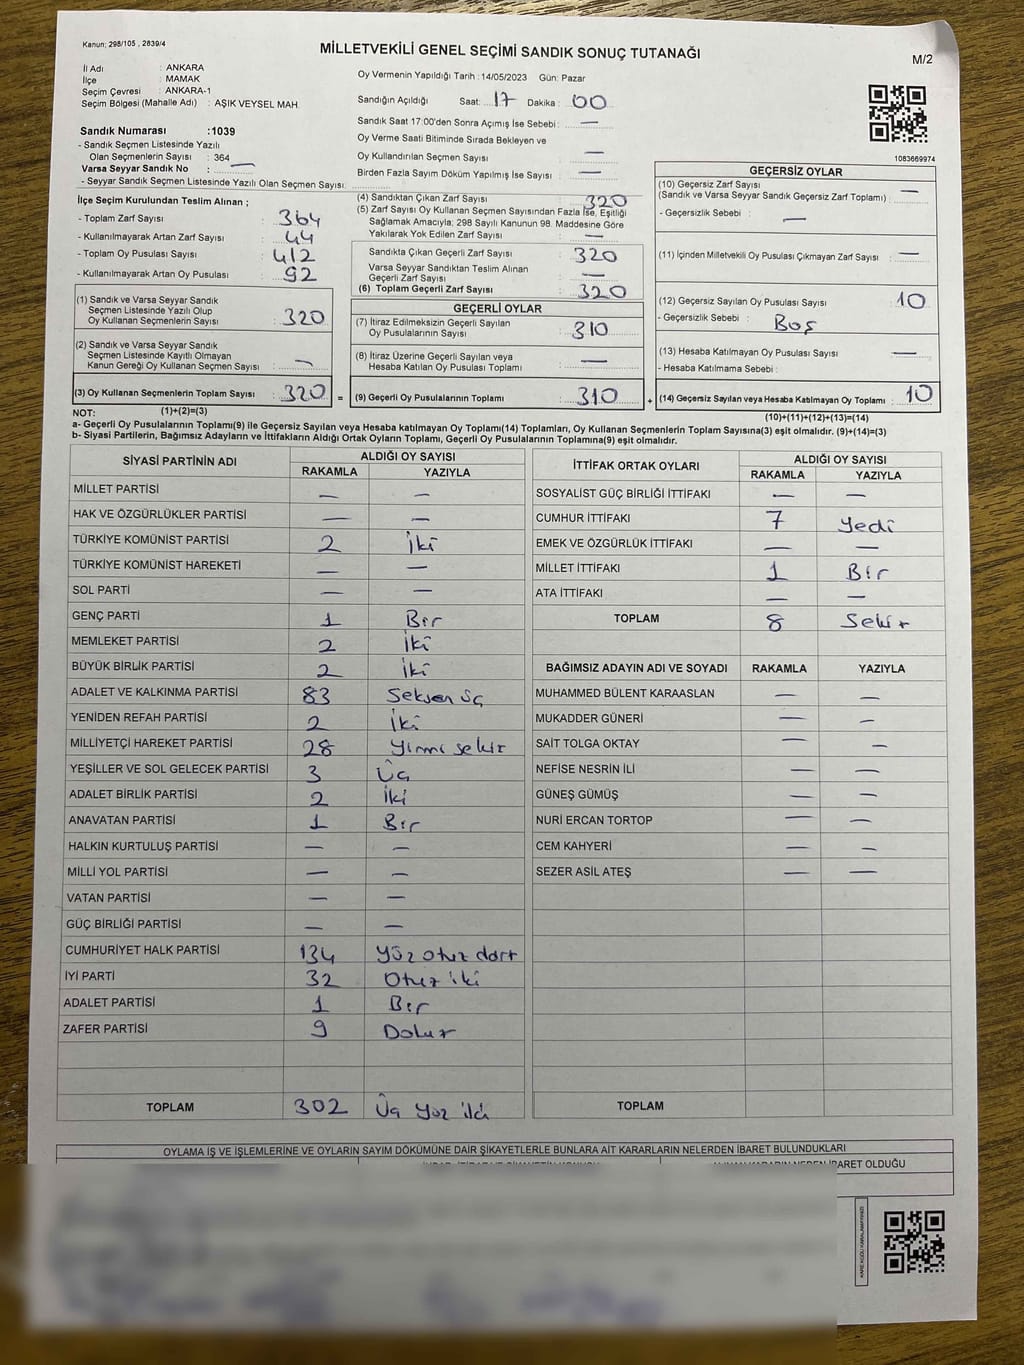 Kanun; 298/105 , 2839/4
MİLLETVEKİLİ GENEL SEÇİMİ SANDIK SONUÇ TUTANAĞI
M/2
İl Adı : ANKARA
İlçe : MAMAK
Seçim Çevresi : ANKARA-1
Seçim Bölgesi (Mahalle Adı) : AŞIK VEYSEL MAH.
Oy Vermenin Yapıldığı Tarih : 14/05/2023 Gün: Pazar
Sandığın Açıldığı Saat: 17 Dakika : 00
Sandık Saat 17:00'den Sonra Açımış İse Sebebi : —
Oy Verme Saati Bitiminde Sırada Bekleyen ve
Oy Kullandırılan Seçmen Sayısı —
Birden Fazla Sayım Döküm Yapılmış İse Sayısı : —
1083669974
Sandık Numarası :1039
- Sandık Seçmen Listesinde Yazılı
Olan Seçmenlerin Sayısı : 364
Varsa Seyyar Sandık No : —
- Seyyar Sandık Seçmen Listesinde Yazılı Olan Seçmen Sayısı:
İlçe Seçim Kurulundan Teslim Alınan ;
- Toplam Zarf Sayısı : 364
- Kullanılmayarak Artan Zarf Sayısı : 44
- Toplam Oy Pusulası Sayısı : 412
- Kullanılmayarak Artan Oy Pusulası : 92
(1) Sandık ve Varsa Seyyar Sandık
Seçmen Listesinde Yazılı Olup
Oy Kullanan Seçmenlerin Sayısı : 320
(2) Sandık ve Varsa Seyyar Sandık
Seçmen Listesinde Kayıtlı Olmayan
Kanun Gereği Oy Kullanan Seçmen Sayısı : —
(3) Oy Kullanan Seçmenlerin Toplam Sayısı : 320 =
(1)+(2)=(3)
(4) Sandıktan Çıkan Zarf Sayısı : 320
(5) Zarf Sayısı Oy Kullanan Seçmen Sayısından Fazla İse, Eşitliği
Sağlamak Amacıyla; 298 Sayılı Kanunun 98. Maddesine Göre
Yakılarak Yok Edilen Zarf Sayısı : —
Sandıkta Çıkan Geçerli Zarf Sayısı : 320
Varsa Seyyar Sandıktan Teslim Alınan
Geçerli Zarf Sayısı : —
(6) Toplam Geçerli Zarf Sayısı : 320
GEÇERLİ OYLAR
(7) İtiraz Edilmeksizin Geçerli Sayılan
Oy Pusulalarının Sayısı : 310
(8) İtiraz Üzerine Geçerli Sayılan veya
Hesaba Katılan Oy Pusulası Toplamı : —
(9) Geçerli Oy Pusulalarının Toplamı : 310 +
GEÇERSİZ OYLAR
(10) Geçersiz Zarf Sayısı
(Sandık ve Varsa Seyyar Sandık Geçersiz Zarf Toplamı) : —
- Geçersizlik Sebebi : —
(11) İçinden Milletvekili Oy Pusulası Çıkmayan Zarf Sayısı : —
(12) Geçersiz Sayılan Oy Pusulası Sayısı : 10
- Geçersizlik Sebebi : Boş
(13) Hesaba Katılmayan Oy Pusulası Sayısı : —
- Hesaba Katılmama Sebebi :
(14) Geçersiz Sayılan veya Hesaba Katılmayan Oy Toplamı : 10
(10)+(11)+(12)+(13)=(14)
NOT:
a- Geçerli Oy Pusulalarının Toplamı(9) ile Geçersiz Sayılan veya Hesaba katılmayan Oy Toplamı(14) Toplamları, Oy Kullanan Seçmenlerin Toplam Sayısına(3) eşit olmalıdır. (9)+(14)=(3)
b- Siyasi Partilerin, Bağımsız Adayların ve İttifakların Aldığı Ortak Oyların Toplamı, Geçerli Oy Pusulalarının Toplamına(9) eşit olmalıdır.
SİYASİ PARTİNİN ADI ALDIĞI OY SAYISI
RAKAMLA YAZIYLA
MİLLET PARTİSİ — —
HAK VE ÖZGÜRLÜKLER PARTİSİ — —
TÜRKİYE KOMÜNİST PARTİSİ 2 İki
TÜRKİYE KOMÜNİST HAREKETİ — —
SOL PARTİ — —
GENÇ PARTİ 1 Bir
MEMLEKET PARTİSİ 2 İki
BÜYÜK BİRLİK PARTİSİ 2 İki
ADALET VE KALKINMA PARTİSİ 83 Seksen üç
YENİDEN REFAH PARTİSİ 2 İki
MİLLİYETÇİ HAREKET PARTİSİ 28 Yirmi sekiz
YEŞİLLER VE SOL GELECEK PARTİSİ 3 Üç
ADALET BİRLİK PARTİSİ 2 İki
ANAVATAN PARTİSİ 1 Bir
HALKIN KURTULUŞ PARTİSİ — —
MİLLİ YOL PARTİSİ — —
VATAN PARTİSİ — —
GÜÇ BİRLİĞİ PARTİSİ — —
CUMHURİYET HALK PARTİSİ 134 Yüz otuz dört
İYİ PARTİ 32 Otuz iki
ADALET PARTİSİ 1 Bir
ZAFER PARTİSİ 9 Dokuz
TOPLAM 302 Üç yüz iki
İTTİFAK ORTAK OYLARI ALDIĞI OY SAYISI
RAKAMLA YAZIYLA
SOSYALİST GÜÇ BİRLİĞİ İTTİFAKI — —
CUMHUR İTTİFAKI 7 Yedi
EMEK VE ÖZGÜRLÜK İTTİFAKI — —
MİLLET İTTİFAKI 1 Bir
ATA İTTİFAKI — —
TOPLAM 8 Sekiz
BAĞIMSIZ ADAYIN ADI VE SOYADI RAKAMLA YAZIYLA
MUHAMMED BÜLENT KARAASLAN — —
MUKADDER GÜNERİ — —
SAİT TOLGA OKTAY — —
NEFİSE NESRİN İLİ — —
GÜNEŞ GÜMÜŞ — —
NURİ ERCAN TORTOP — —
CEM KAHYERİ — —
SEZER ASİL ATEŞ — —
TOPLAM
OYLAMA İŞ VE İŞLEMLERİNE VE OYLARIN SAYIM DÖKÜMÜNE DAİR ŞİKAYETLERLE BUNLARA AİT KARARLARIN NELERDEN İBARET BULUNDUKLARI
İBARET OLDUĞU
KARE KODU KARALAMAYINIZ!